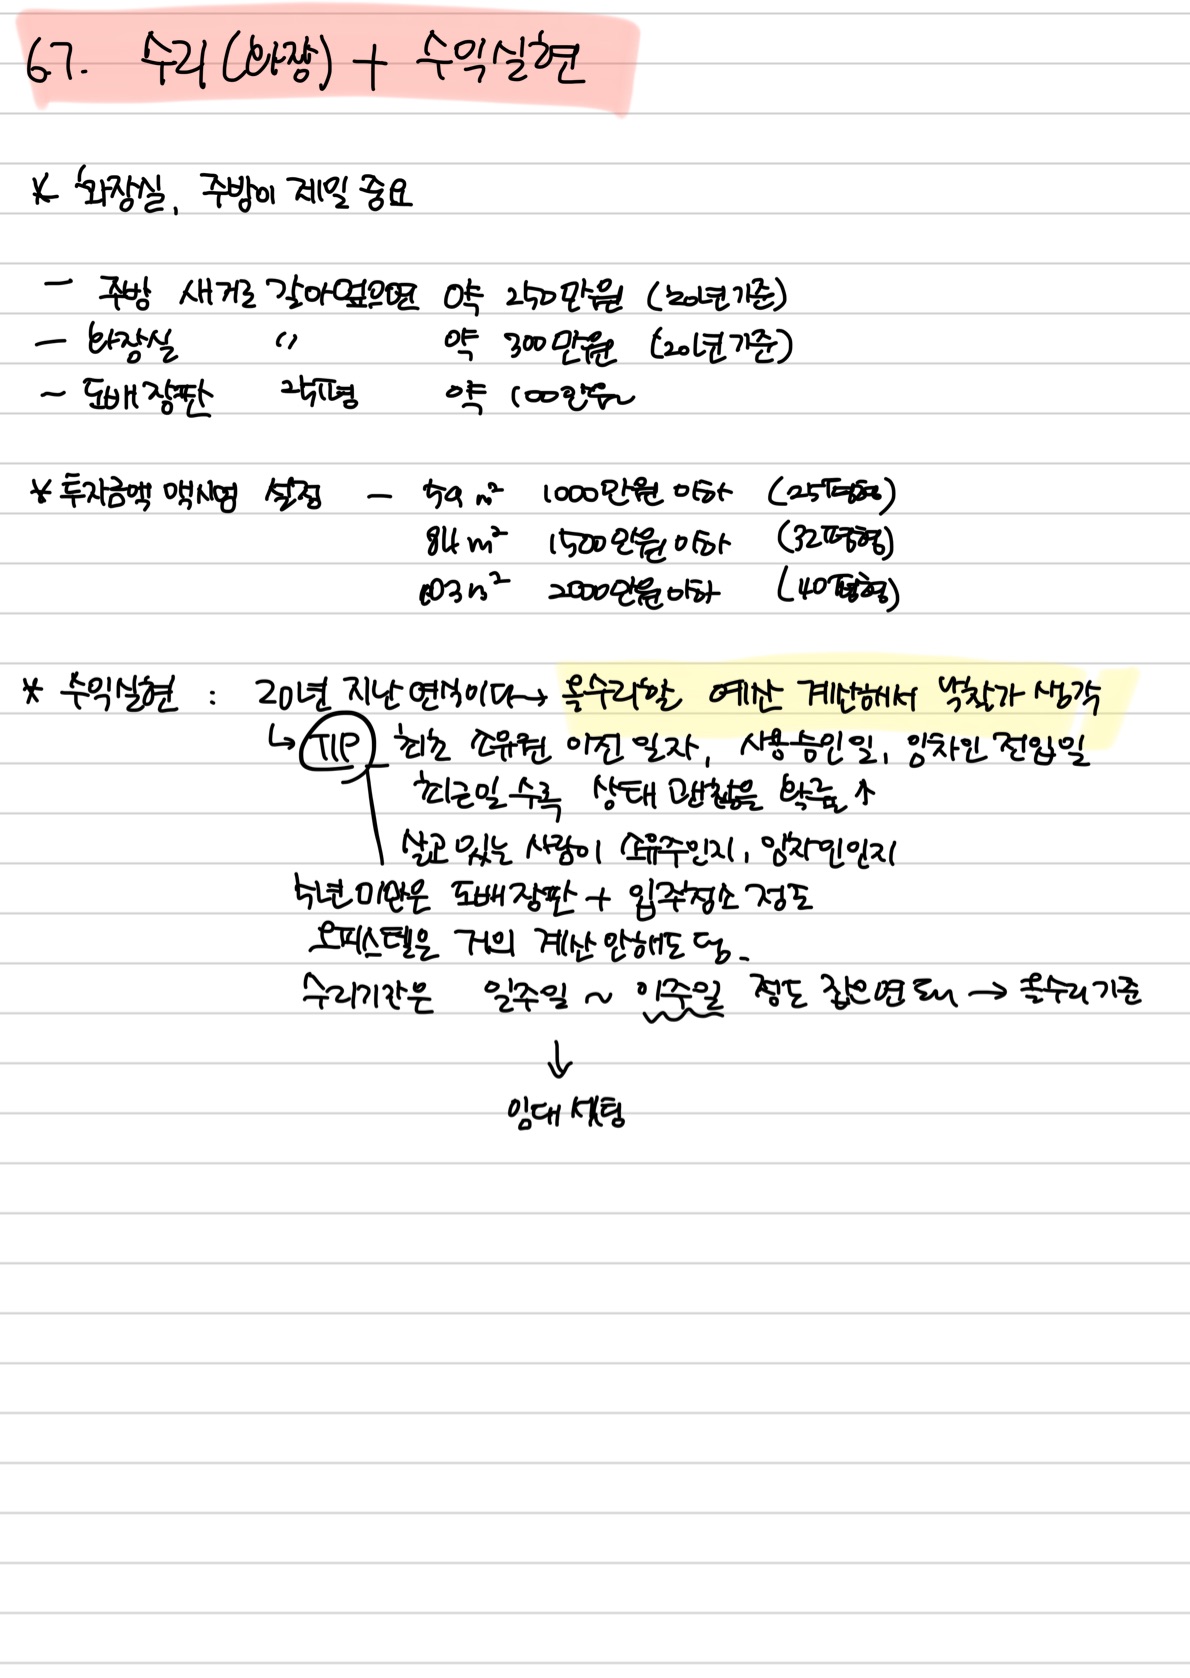 67. 수리(화장) + 수익실현
* 화장실, 주방이 제일 중요
- 주방 새거로 갈아엎으면 약 250만원 (20년기준)
- 화장실 〃 약 300만원 (20년기준)
~ 도배장판 25평 약 100만원
* 투자금액 맥시멈 설정 - 59m² 1000만원 이하 (25평형)
84m² 1500만원이하 (32평형)
103m² 2000만원이하 (40평형)
* 수익실현 : 20년 지난 연식이다→ 올수리할 예산 계산해서 낙찰가 생각
↳ TIP 최초 소유권 이전 일자, 사용승인일, 임차인 전입일
최근일수록 상태 괜찮을 확률↑
살고 있는 사람이 소유주인지, 임차인인지
5년미만은 도배장판 + 입주청소 정도
오피스텔은 거의 계산 안해도 됨.
수리기간은 일주일 ~ 이주일 정도 잡으면 돼 → 올수리기준
↓
임대 셋팅